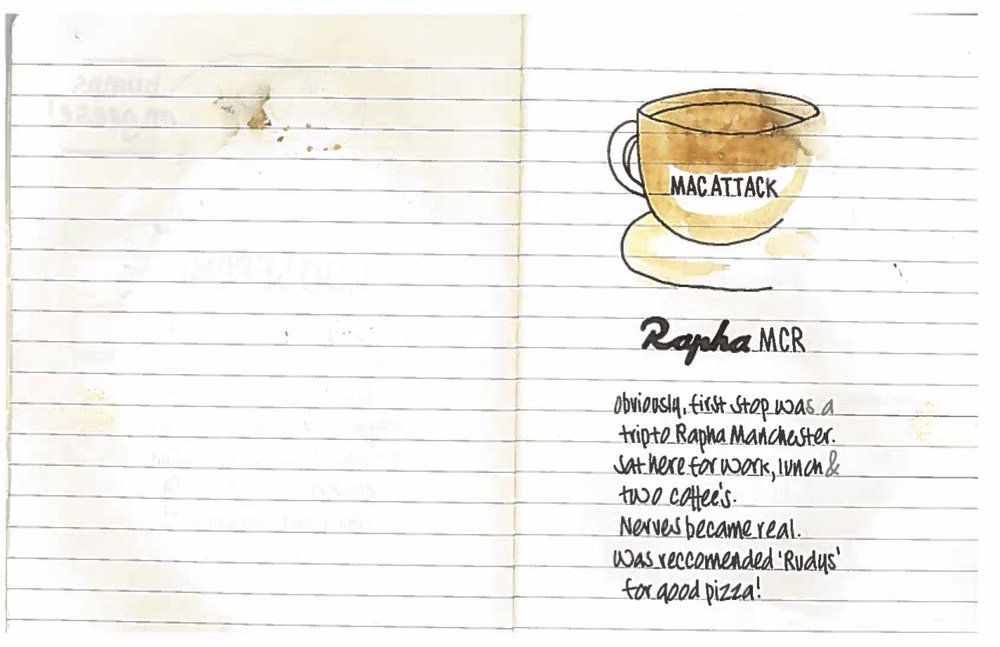 MAC ATTACK
Rapha MCR
obviously, first stop was a
trip to Rapha Manchester.
sat here for work, lunch &
two coffee's.
Nerves became real.
was reccomended 'Rudys'
for good pizza!